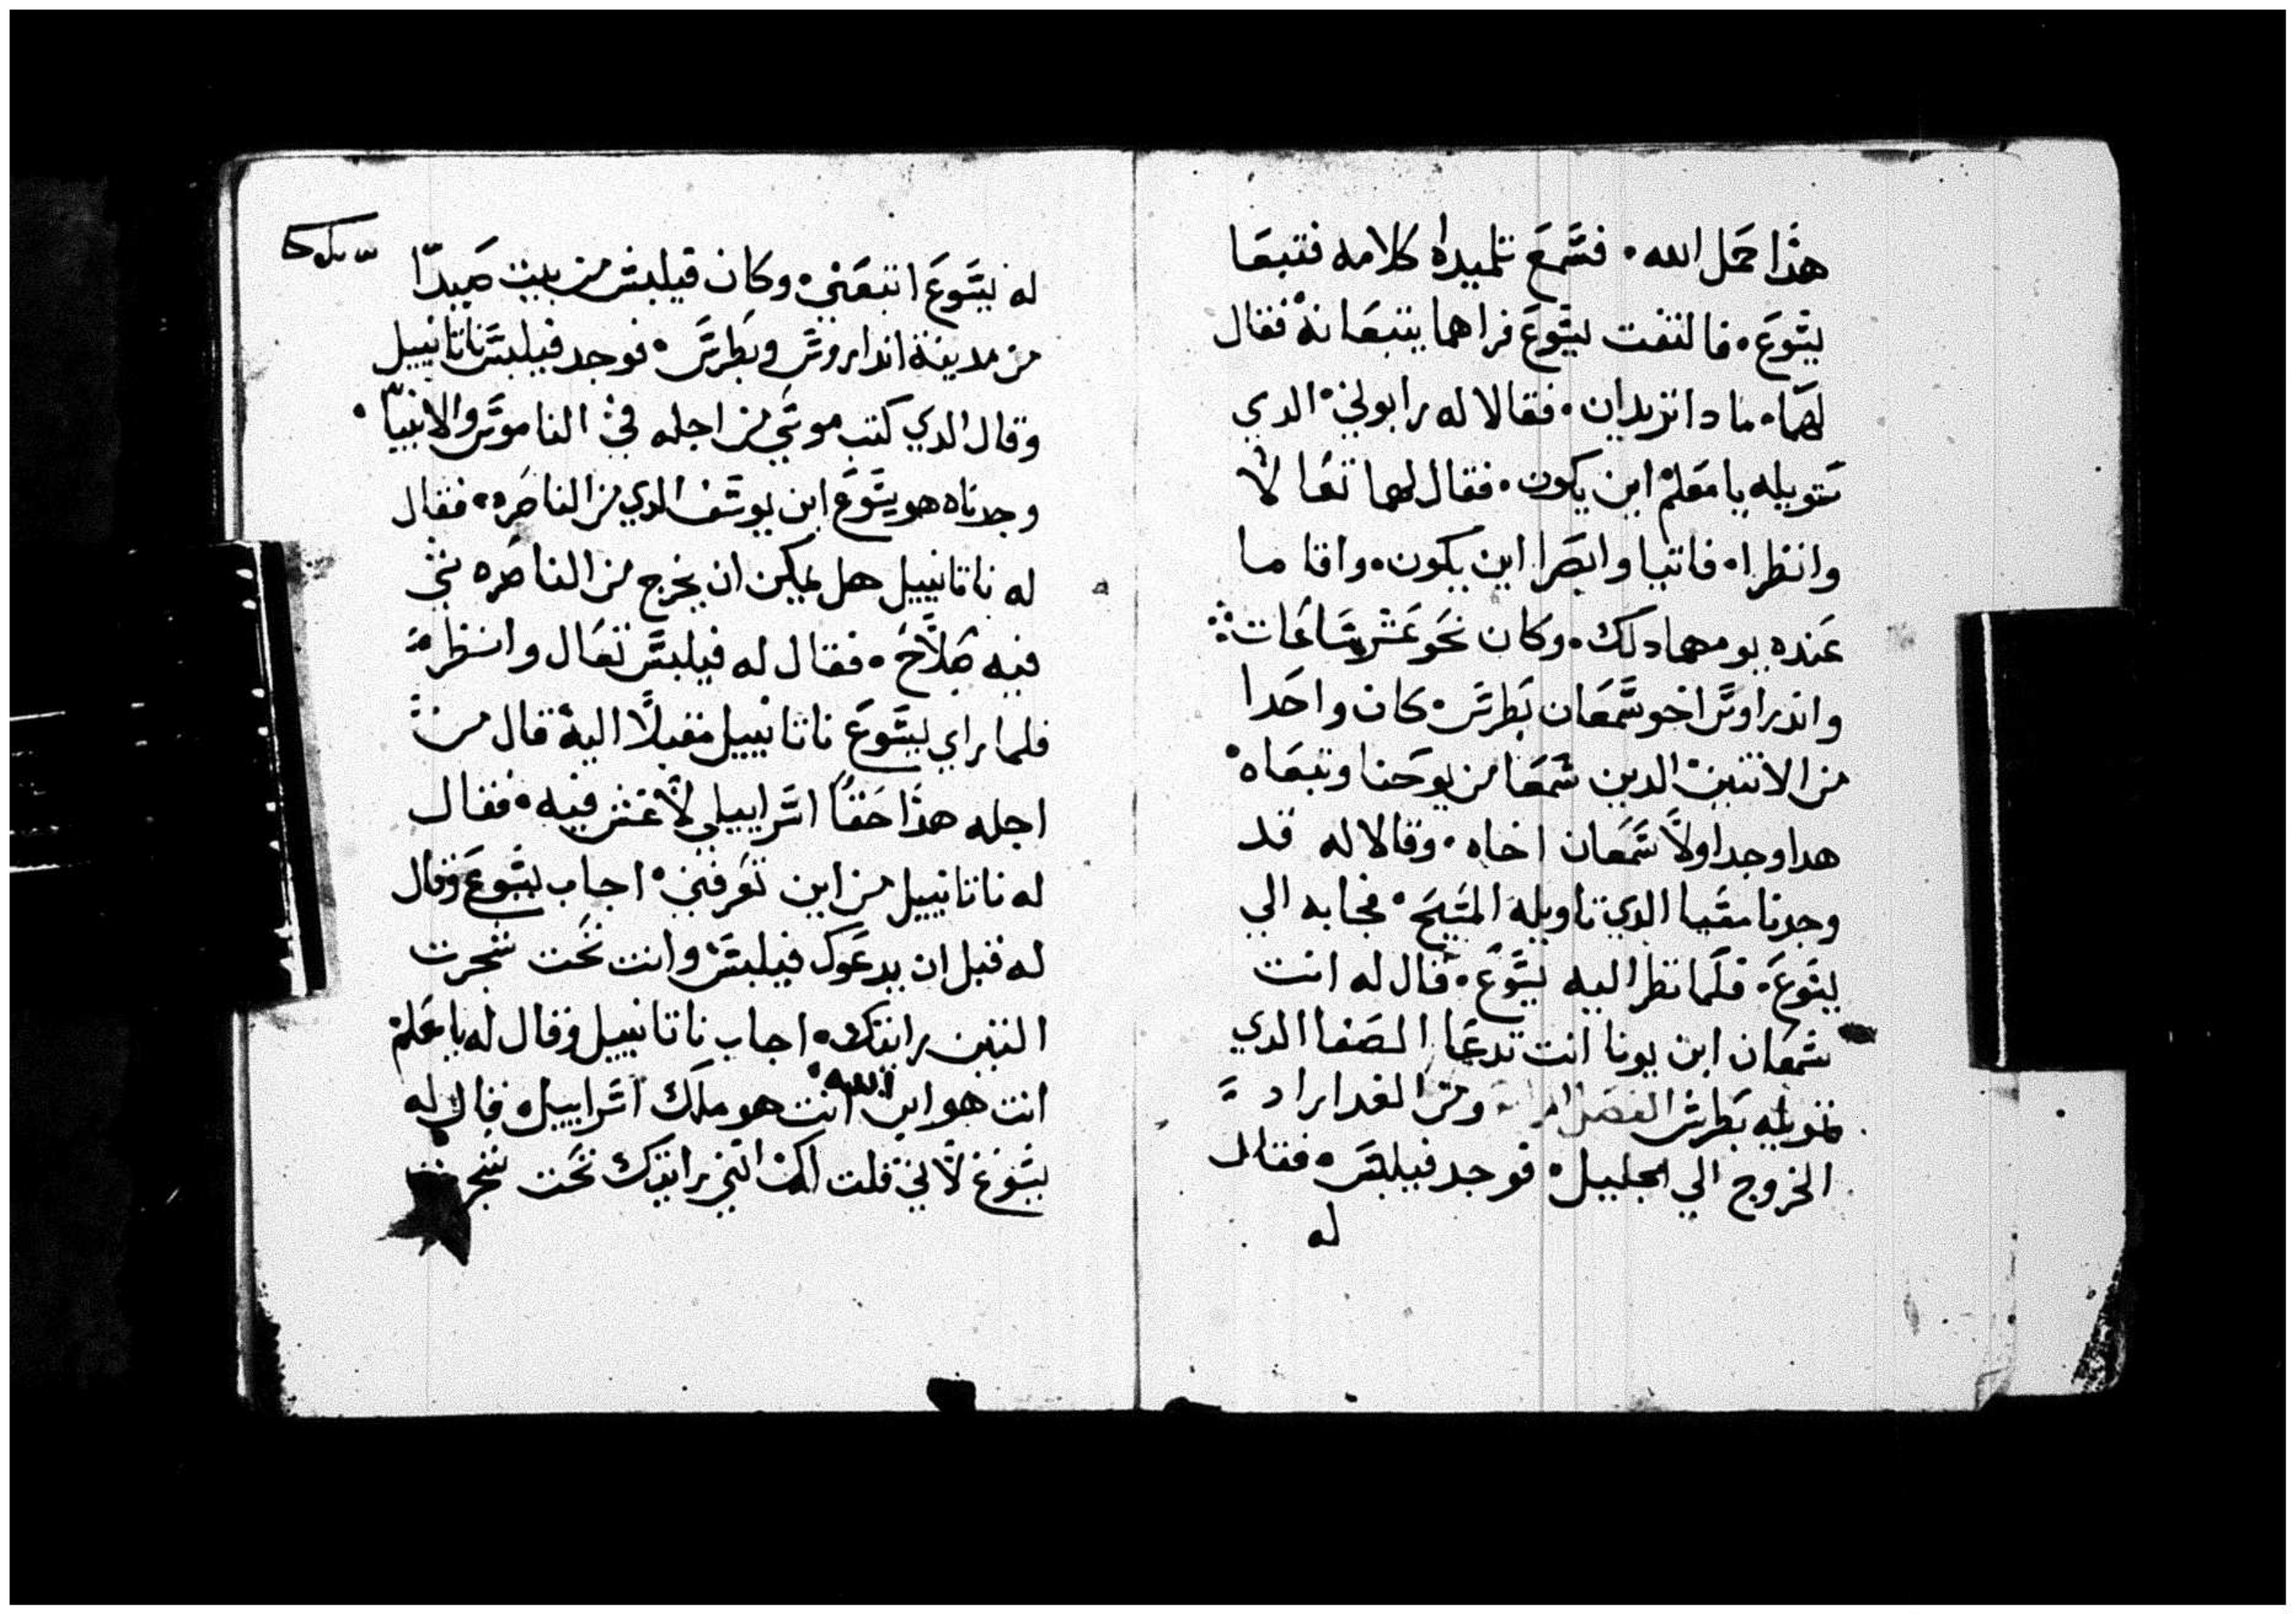 هدا حمل الله • فسمع تلميداه كلامه فتبعا
يسوع • فالتفت يسوع فراهما يتبعانه فقال
لهما • مادا تريدان • فقالا له رابوني • الدي
تتويله يا معلم اين يكون • فقال لهما تعالا
وانظرا • فاتيا وابصرا اين يكون • واقاما
عنده يومهما دلك • وكان نحو عشر ساعات ⁘
واندراوس اخو سمعان بطرس • كان واحدا
من الاتنين الدين سمعا من يوحنا وتبعاه •
هدا وجد اولا سمعان اخاه • وقالا له قد
وجدنا مسيا الدي تاويله المسيح • فجا به الي
يسوع • فلما نظر اليه يسوع • قال له انت
سمعان ابن يونا انت تدعا الصفا الدي
تتويله بطرس الفصل ومن الغد اراد
الخروج الي الجليل • فوجد فيلبس • فقال
له
له يسوع اتبعني • وكان فيلبس من بيت صيدا
من مدينة انداروس وبطرس • فوجد فيلبس ناتانييل
وقال الدي كتب موسي من اجله في الناموس والانبيا •
وجدناه هو يسوع ابن يوسف الدي من الناصره • فقال
له ناتانييل هل يمكن ان يخرج من الناصره شي
فيه صلاح • فقال له فيلبس تعال وانظر
فلما راي يسوع ناتانييل مقبلا اليه قال من
اجله هدا حقا اسراييلي لا غش فيه • فقال
له ناتانييل من اين تعرفني • اجاب يسوع وقال
له قبل ان يدعوك فيلبس وانت تحت شجرت
التين رايتك • اجاب ناتانييل وقال له يا معلم
انت هو ابن الله • انت هو ملك اسراييل • قال له
يسوع لاني قلت لك انني رايتك تحت شجرت